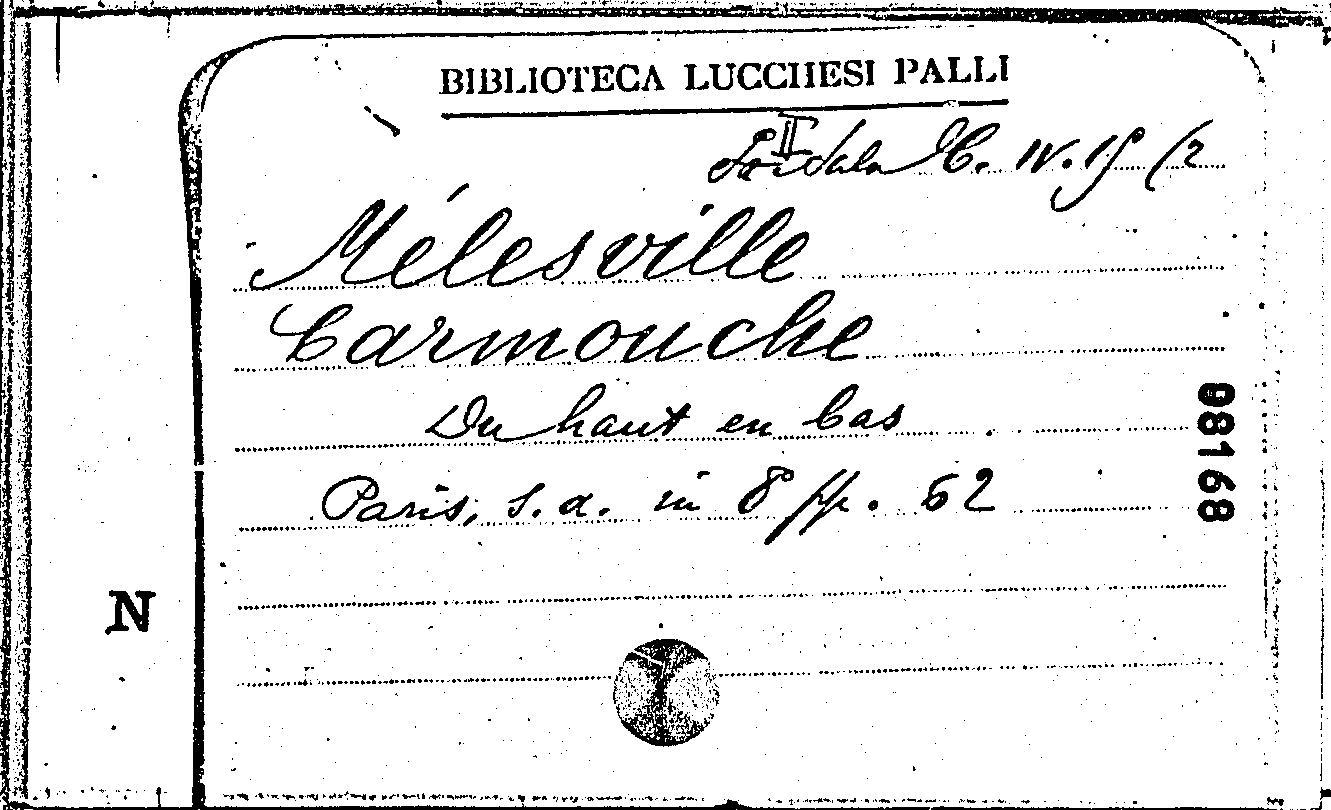 BIBLIOTECA LUCCHESI PALLI
II Sala C. IV. 15 (2
Mélesville
Carmouche
Du haut en bas
Paris, s. a. in 8° pp. 52
98168
N